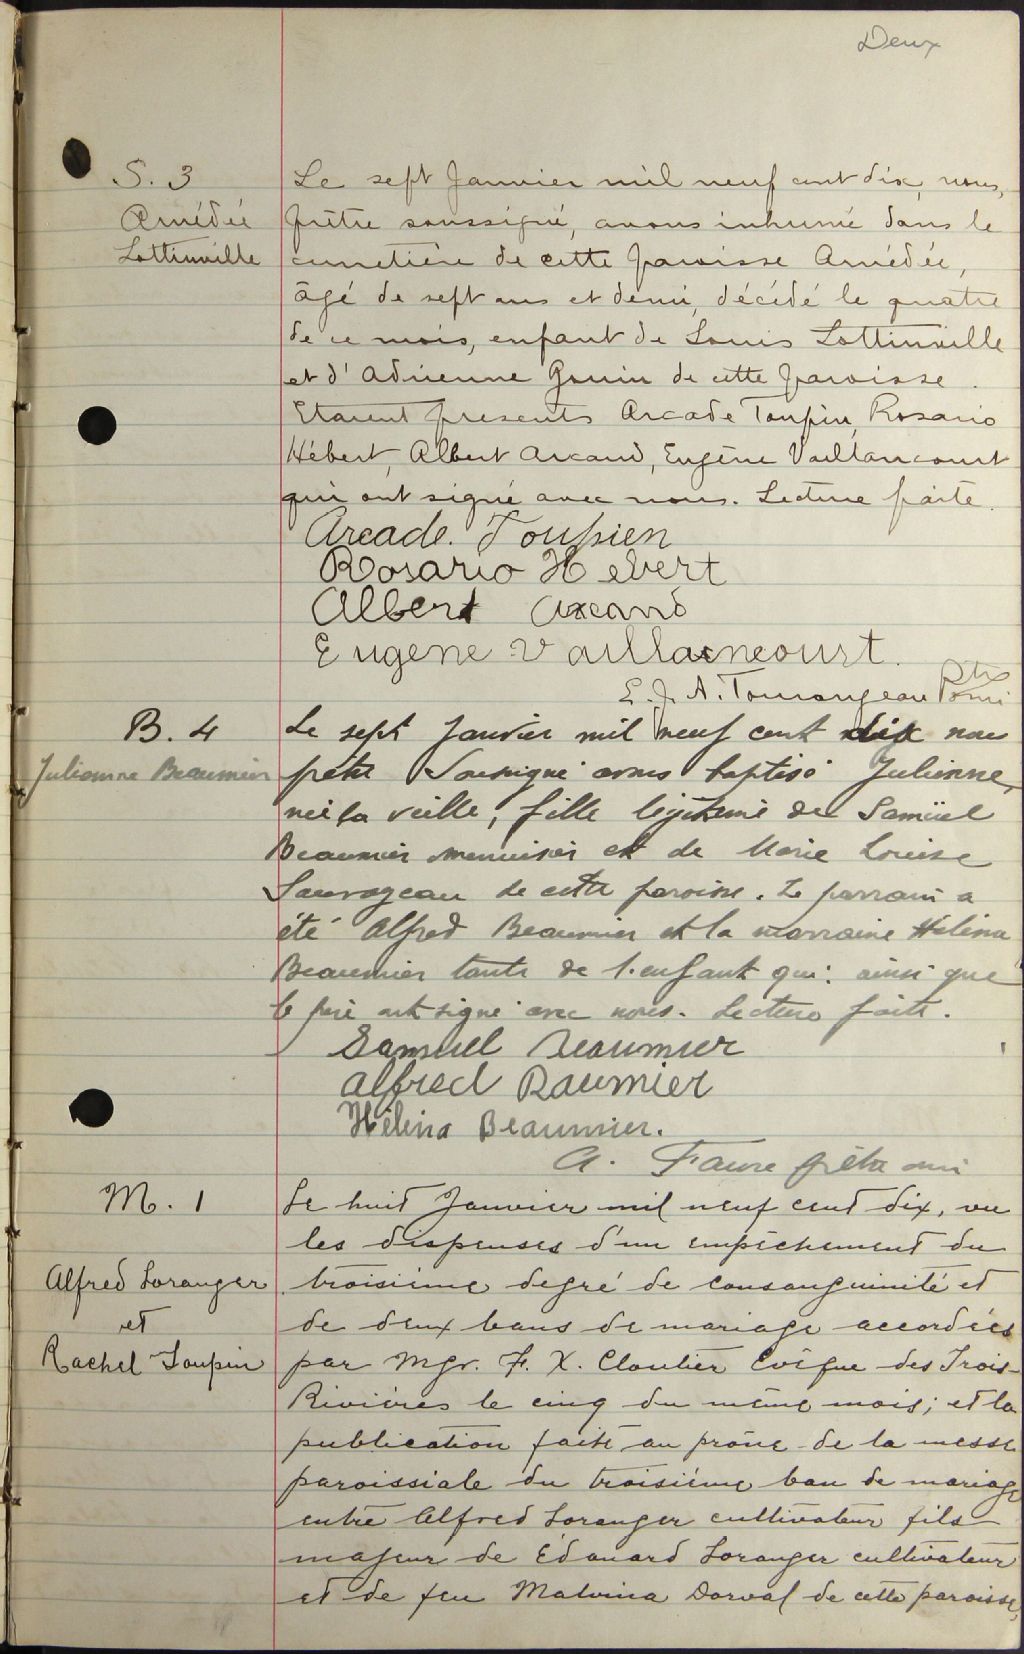 Deux
S. 3
Amédée
Lottinville
Le sept Janvier mil neuf cent dix, nous,
prêtre soussigné, avons inhumé dans le
cimetière de cette paroisse Amédée,
âgé de sept ans et demi, décédé le quatre
de ce mois, enfant de Louis Lottinville
et d'Adrienne Gouin de cette paroisse.
Etaient presents Arcade Toupin, Rosario
Hébert, Albert Arcand, Eugène Vaillancourt
qui ont signé avec nous. Lecture faite.
Arcade. Toupien
Rosario Hebert
Albert Arcand
Eugene Vaillancourt.
E. J. A. Tourangeau Ptre
B. 4
Julienne Beaumier
Le sept Janvier mil neuf cent dix nous
prêtre soussigné avons baptisé Julienne,
née la veille, fille légitime de Samüel
Beaumier menuisier et de Marie Louise
Sauvageau de cette paroisse. Le parrain a
été Alfred Beaumier et la marraine Hélina
Beaumier tante de l'enfant qui ainsi que
le père ont signé avec nous. Lecture faite.
Samuel Beaumier
Alfred Baumier
Hélina Beaumier.
A. Favre prêtre
M. 1
Alfred Loranger
et
Rachel Toupin
Le huit Janvier mil neuf cent dix, vu
les dispenses d'un empêchement du
troisième degré de consanguinité et
de deux bans de mariage accordées
par Mgr. F. X. Cloutier Evêque des Trois-
Rivières le cinq du même mois; et la
publication faite au prône de la messe
paroissiale du troisième ban de mariage
entre Alfred Loranger cultivateur fils
majeur de Édouard Loranger cultivateur
et de feu Malvina Dorval de cette paroisse,